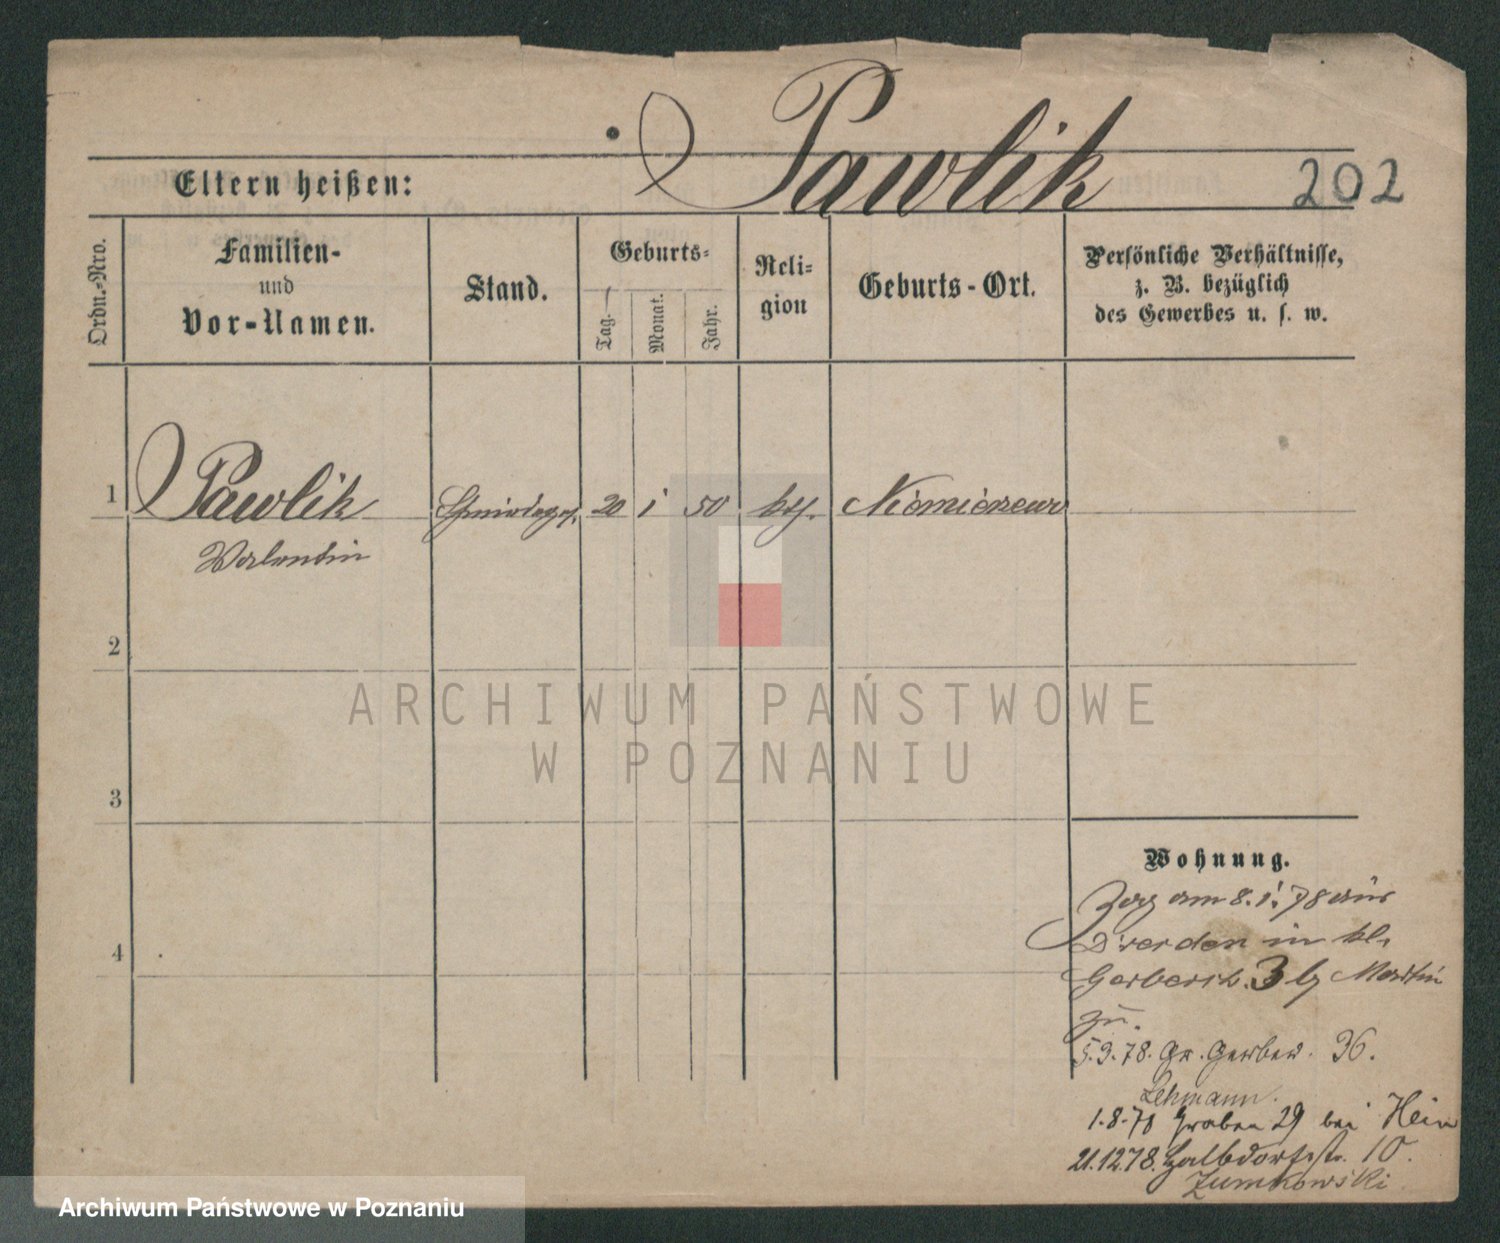 Pawlik
202
Eltern heißen:
Ordn.-Nro.
Familien-
und
Vor-Namen.
Stand.
Geburts-
Tag.
Monat.
Jahr.
Reli-
gion
Geburts-Ort.
Persönliche Verhältnisse,
z. B. bezüglich
des Gewerbes u. s. w.
1
Pawlik
20
i
50
kth.
Niemiczewo
Valentin
2
3
4
Wohnung.
Zog am 8.1.78 aus
Dresden in kl.
Gerberst. 3 b/ Martin
zu.
5.3.78. Gr. Gerber. 36.
Lehmann.
1.8.78 Graben 29 bei Hein
21.12.78. Halbdorfstr. 10.
Zumkowski
ARCHIWUM PAŃSTWOWE
W POZNANIU
Archiwum Państwowe w Poznaniu